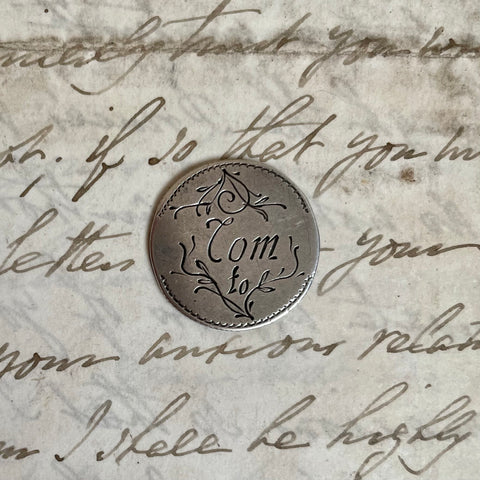 trust you w
if so that you
Tom
to
letters your
your anxious relat
I shall be highly